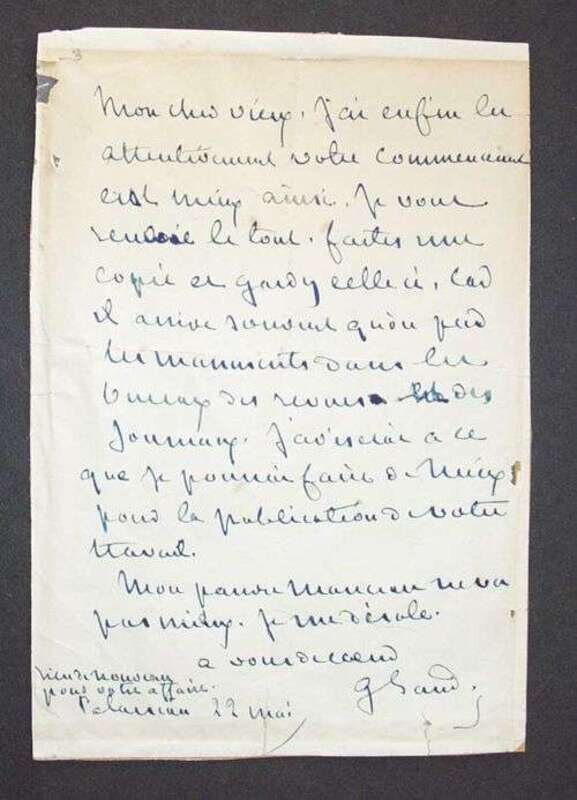 3
Mon cher vieux, J'ai enfin lu
attentivement votre commencement
est mieux ainsi. Je vous
renvoie le tout. faites une
copie et gardez celle ci, car
il arrive souvent qu'on perd
les manuscrits dans les
bureaux des revues des
journaux. J'aviserai à ce
que je pourrai faire de mieux
pour la publication de votre
travail.
Mon pauvre Manceau ne va
pas mieux. Je me désole.
a vous de cœur
G Sand.
rien de nouveau
pour votre affaire.
Palaiseau 22 mai